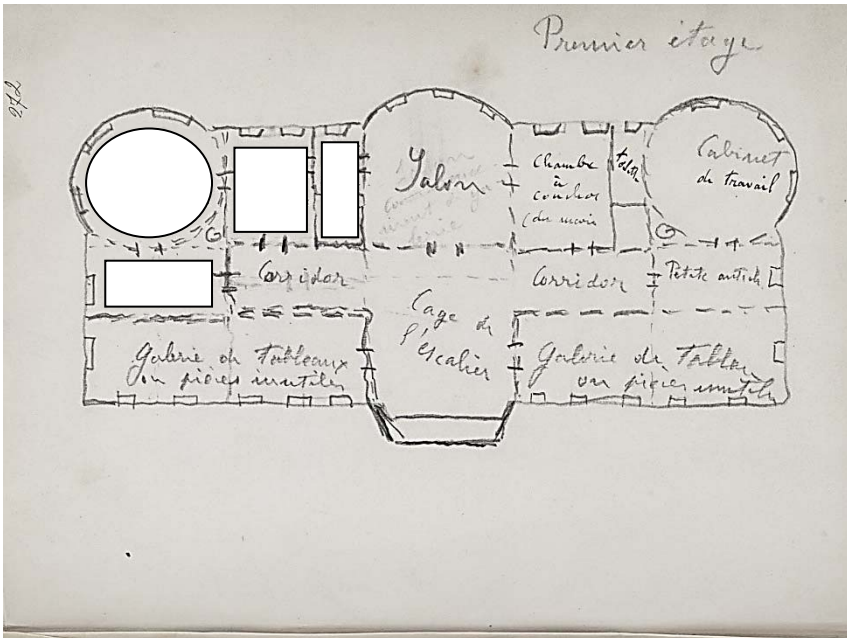 Premier étage
272
Salon
Chambre
à
coucher
Cabinet
de travail
Corridor
Cage de
l'escalier
Corridor
Petite antich
Galerie de Tableaux
ou pièces inutiles
Galerie de Tableau
ou pièces inutiles